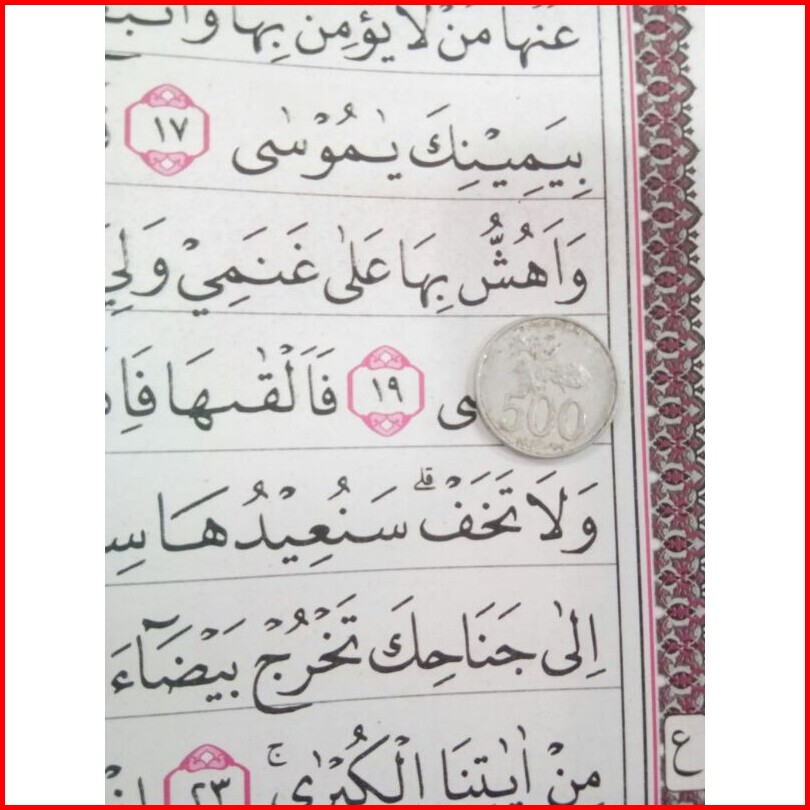 عَنْهَا مَنْ لَّا يُؤْمِنُ بِهَا وَاتَّبَ
بِيَمِيْنِكَ يٰمُوْسٰى ١٧
وَاَهُشُّ بِهَا عَلٰى غَنَمِيْ وَلِيَ
ى ١٩ فَاَلْقٰىهَا فَاِذَ
500
وَلَا تَخَفْۗ سَنُعِيْدُهَا سِ
اِلٰى جَنَاحِكَ تَخْرُجْ بَيْضَاۤءَ
مِنْ اٰيٰتِنَا الْكُبْرٰىۚ ٢٣
ع